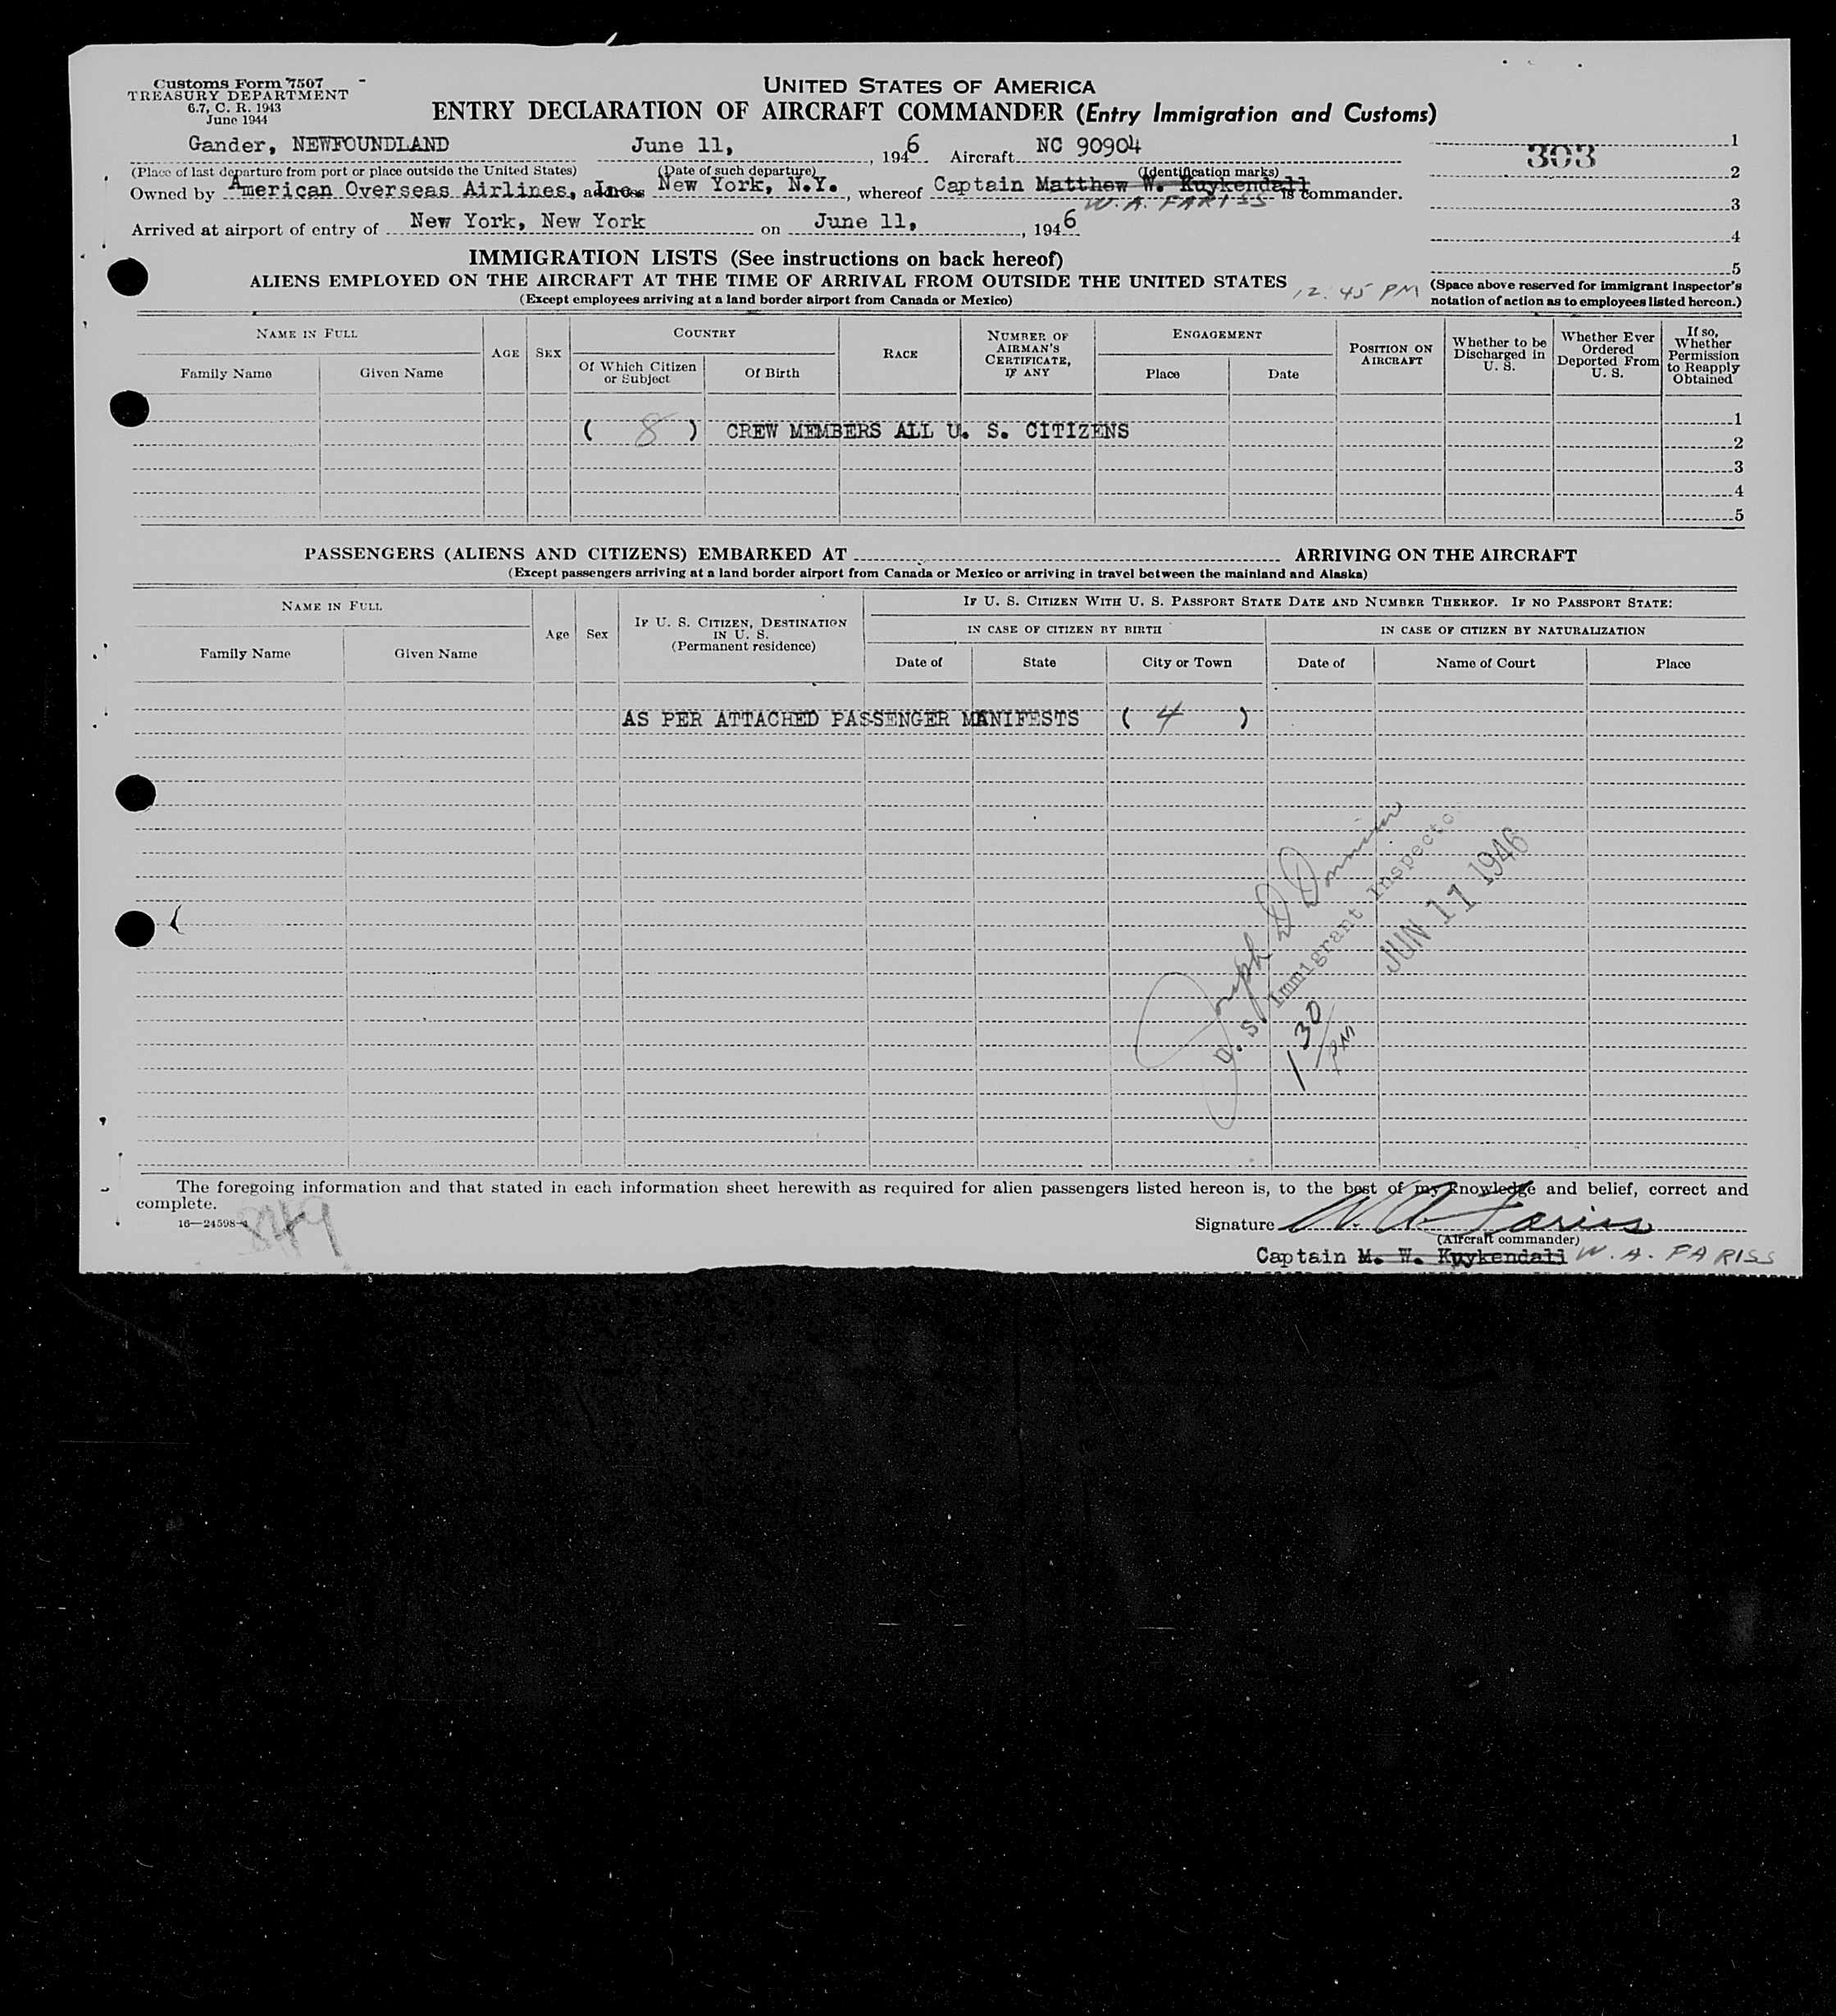 Customs Form 7507
TREASURY DEPARTMENT
6.7, C. R. 1943
June 1944
UNITED STATES OF AMERICA
ENTRY DECLARATION OF AIRCRAFT COMMANDER (Entry Immigration and Customs)
Gander, NEWFOUNDLAND June 11, , 1946 Aircraft NC 90904
(Place of last departure from port or place outside the United States) (Date of such departure) (Identification marks)
303
Owned by American Overseas Airlines, Inc. address New York, N.Y. , whereof Captain Matthew W. Kuykendall is commander.
W. A. FARISS
Arrived at airport of entry of New York, New York on June 11, , 1946
1
2
3
4
5
IMMIGRATION LISTS (See instructions on back hereof)
ALIENS EMPLOYED ON THE AIRCRAFT AT THE TIME OF ARRIVAL FROM OUTSIDE THE UNITED STATES 12.45 PM
(Except employees arriving at a land border airport from Canada or Mexico)
(Space above reserved for immigrant inspector's
notation of action as to employees listed hereon.)
NAME IN FULL
Family Name Given Name
AGE SEX
COUNTRY
Of Which Citizen
or Subject
Of Birth
RACE
NUMBER OF
AIRMAN'S
CERTIFICATE,
IF ANY
ENGAGEMENT
Place Date
POSITION ON
AIRCRAFT
Whether to be
Discharged in
U. S.
Whether Ever
Ordered
Deported From
U. S.
If so,
Whether
Permission
to Reapply
Obtained
1
( 8 ) CREW MEMBERS ALL U. S. CITIZENS
2
3
4
5
PASSENGERS (ALIENS AND CITIZENS) EMBARKED AT ARRIVING ON THE AIRCRAFT
(Except passengers arriving at a land border airport from Canada or Mexico or arriving in travel between the mainland and Alaska)
NAME IN FULL
Family Name Given Name
Age Sex
IF U. S. CITIZEN, DESTINATION
IN U. S.
(Permanent residence)
IF U. S. CITIZEN WITH U. S. PASSPORT STATE DATE AND NUMBER THEREOF. IF NO PASSPORT STATE:
IN CASE OF CITIZEN BY BIRTH IN CASE OF CITIZEN BY NATURALIZATION
Date of State City or Town Date of Name of Court Place
AS PER ATTACHED PASSENGER MANIFESTS ( 4 )
Joseph D
U. S. Immigrant Inspector
JUN 11 1946
1 30/PM
The foregoing information and that stated in each information sheet herewith as required for alien passengers listed hereon is, to the best of my knowledge and belief, correct and
complete.
16—24598-1
Signature W. A. Fariss
(Aircraft commander)
Captain M. W. Kuykendall W. A. FARISS